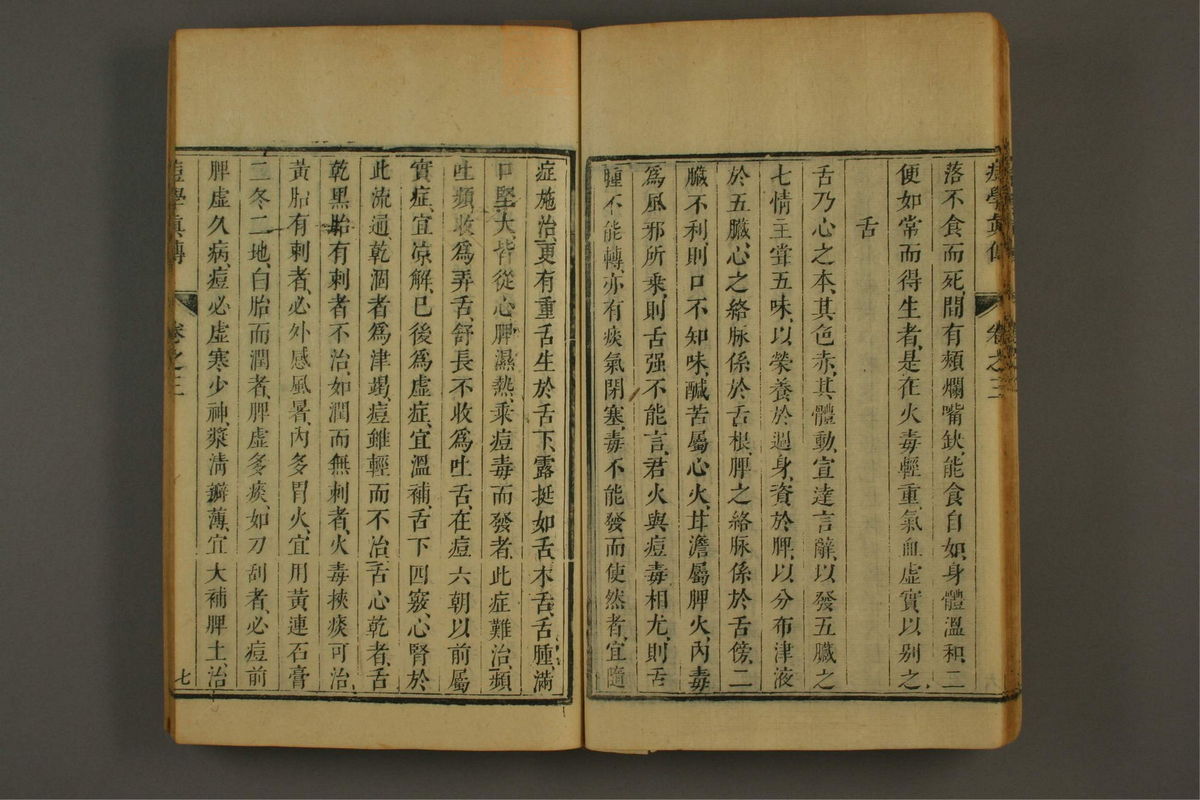 痘學眞傳 卷之三
落不食而死、間有頰爛嘴缺、能食自如、身體溫和、二
便如常而得生者、是在火毒輕重、氣血虛實、以别之
舌
舌乃心之本、其色赤、其體動、宣達言辭、以發五臟之
七情主嘗五味、以榮養於遍身、資於脾、以分布津液
於五臟、心之絡脉係於舌根、脾之絡脉係於舌傍、二
臟不利、則口不知味、醎苦屬心火、甘澹屬脾火、內毒
爲風邪所乘、則舌强不能言、君火與痘毒相尤、則舌
腫不能轉、亦有痰氣閉塞、毒不能發而使然者、宜隨
症施治、更有重舌生於舌下、露挺如舌、木舌、舌腫滿
口堅大、皆從心脾濕熱、乘痘毒而發者、此症難治、頻
吐頻收爲弄舌、舒長不收爲吐舌、在痘六朝以前屬
實症、宜凉解、已後爲虛症、宜溫補、舌下四竅、心腎於
此流通、乾涸者爲津竭、痘雖輕而不治、舌心乾者、舌
乾黑胎有刺者不治、如潤而無刺者、火毒挾痰可治
黃胎有刺者、必外感風暑、內多胃火、宜用黃連石膏
二冬、二地、白胎而潤者、脾虛多痰、如刀刮者、必痘前
脾虛久病、痘必虛寒少神、漿淸瓣薄、宜大補脾土、治
痘學眞傳 卷之三 七